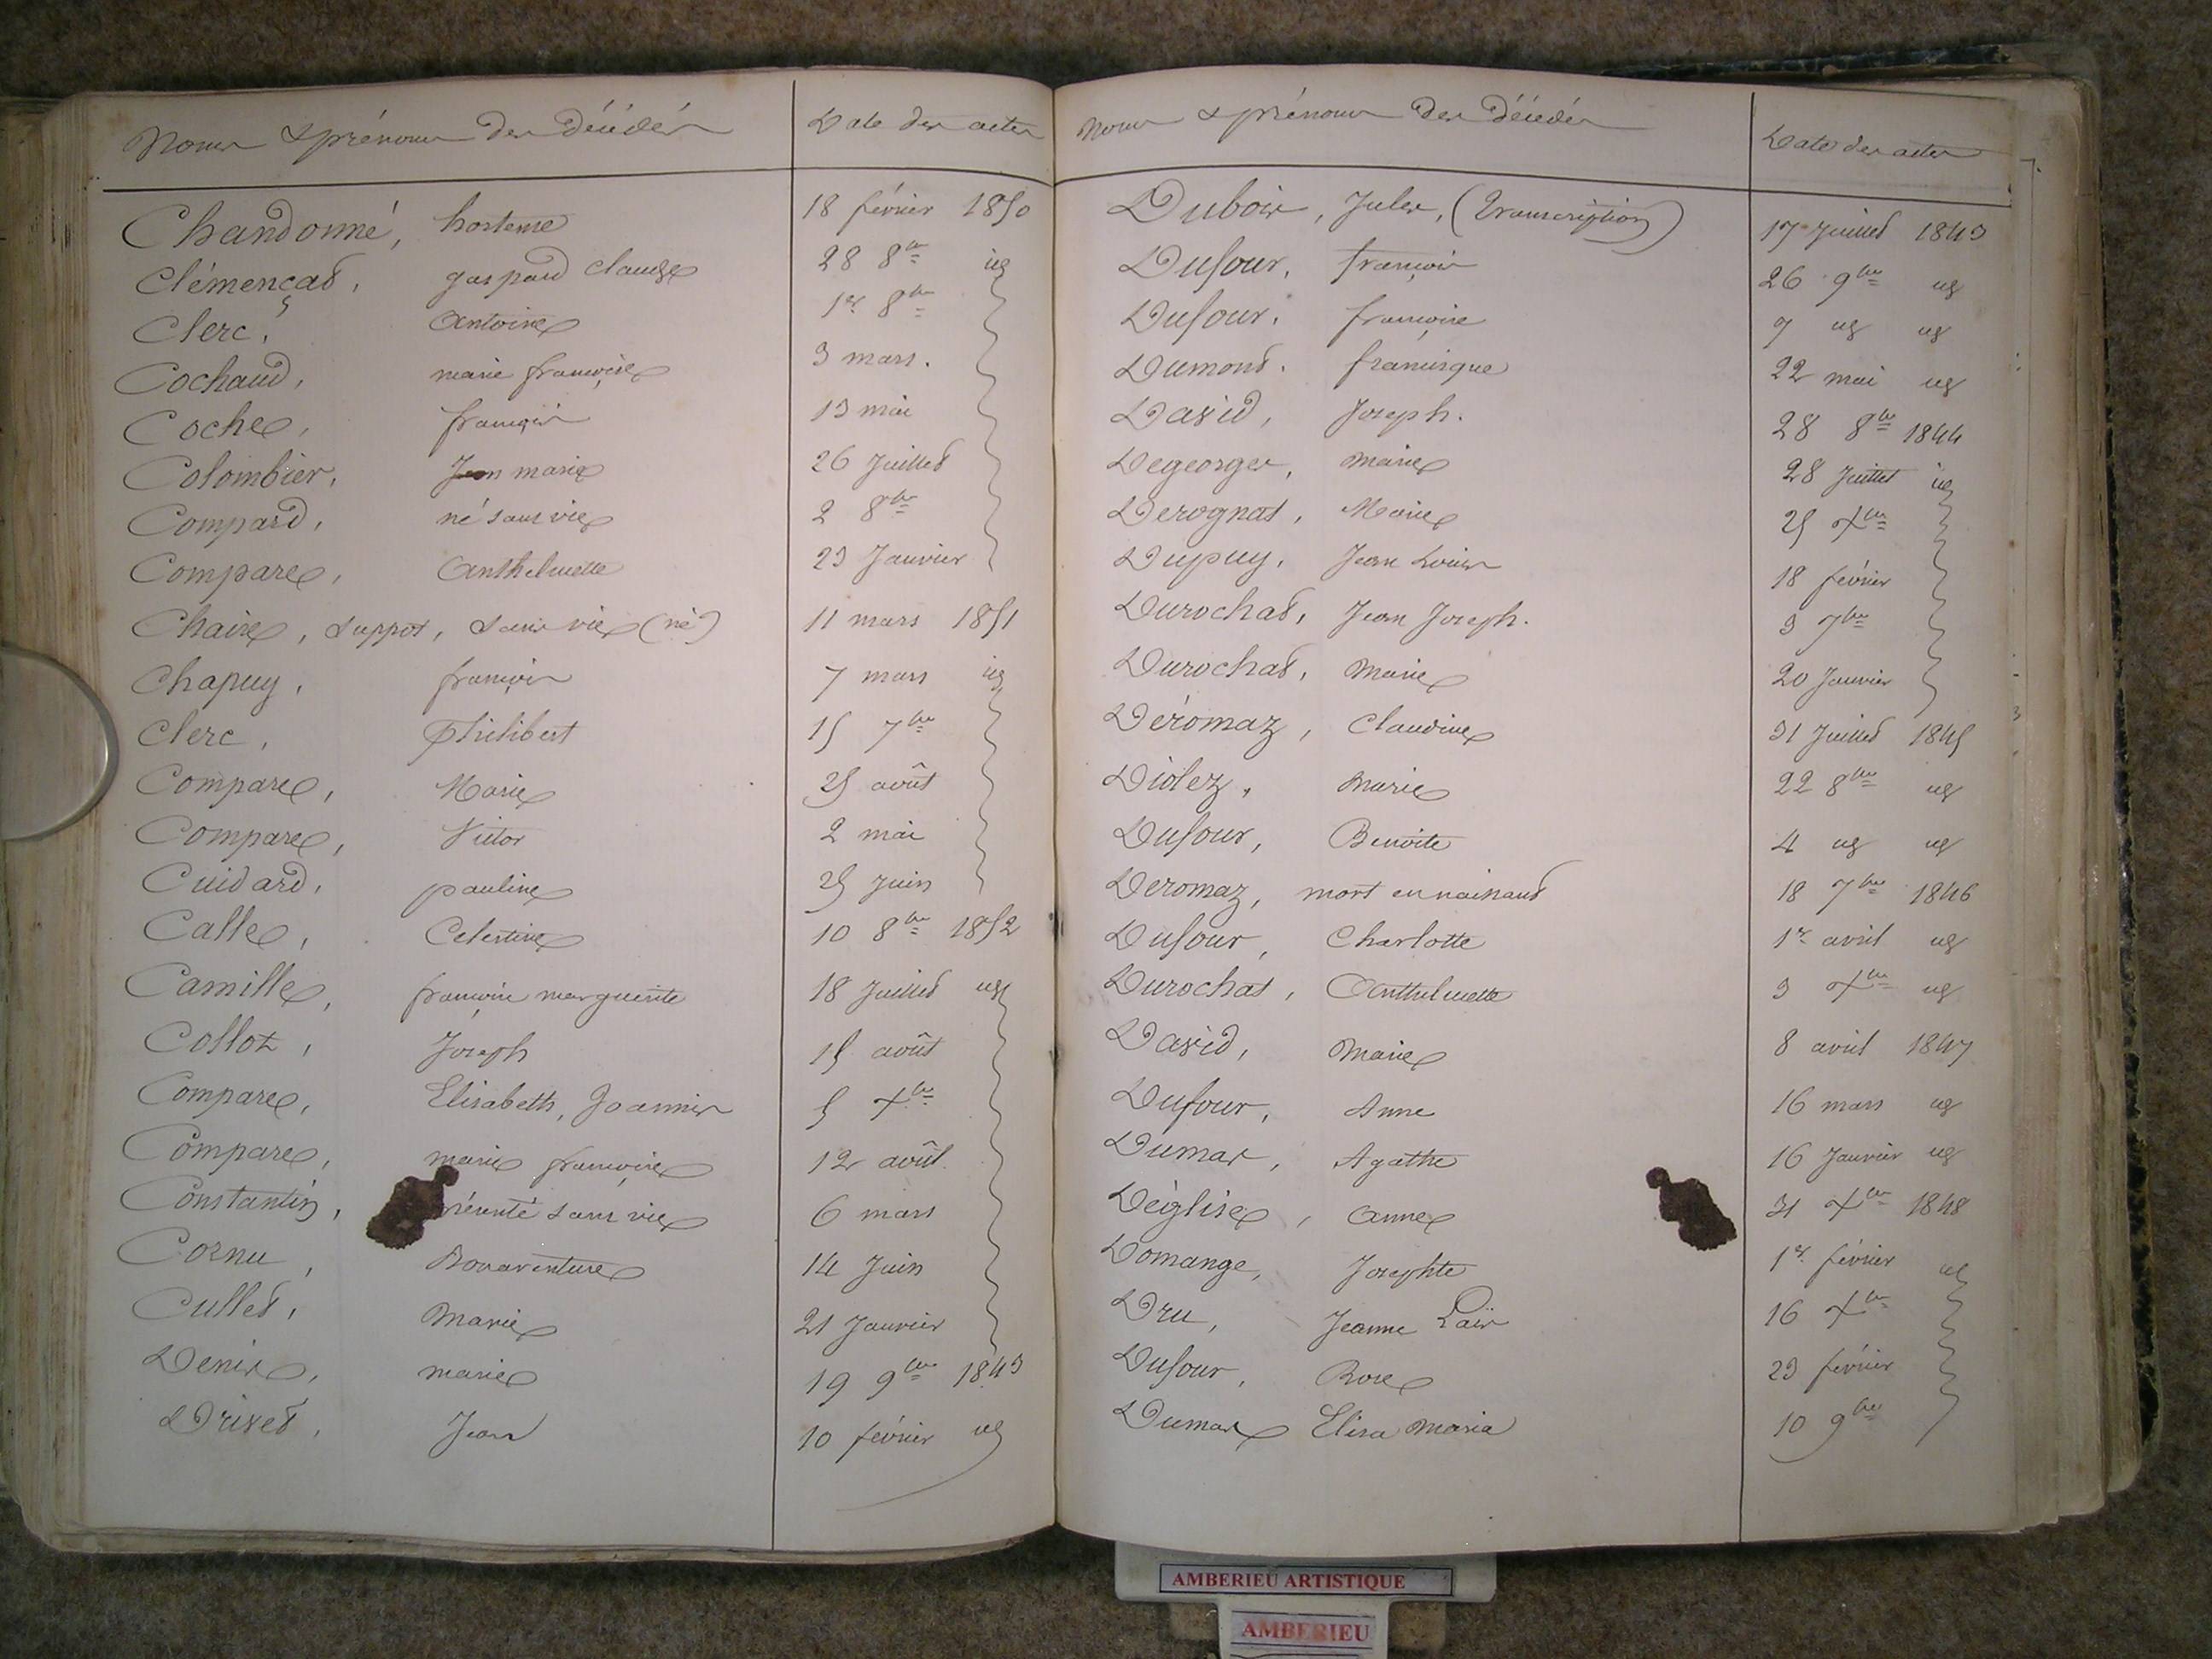 Noms & prénoms des décédés Date des actes
Chandonné, hortense 18 février 1850
Clémençat, gaspard Claude 28 8bre id
Clerc, Antoine 1er 8bre
Cochaud, marie françoise 3 mars.
Coche, françois 13 mai
Colombier, Jean marie 26 Juillet
Compard, né sans vie 2 8bre
Compare, Anthelmette 23 Janvier
Chaire, suppot, sans vie (né) 11 mars 1851
Chapuy, françois 7 mars id
Clerc, Philibert 15 7bre
Compare, Marie 25 août
Compare, Victor 2 mai
Cuidard, pauline 25 Juin
Calle, Celestine 10 8bre 1852
Camille, françoise marguerite 18 Juillet id
Collot, Joseph 15 août
Compare, Elisabeth, Joannis 5 Xbre
Compare, marie françoise 12 août
Constantin, présenté sans vie 6 mars
Cornu, Bonaventure 14 Juin
Cullet, Marie 21 Janvier
Denis, marie 19 9bre 1843
Drivet, Jean 10 février id
Noms & prénoms des décédés Date des actes
Dubois, Jules, (Transcription) 17 Juillet 1843
Dufour, françois 26 9bre id
Dufour, françoise 7 id id
Dumont. francisque 22 mai id
David, Joseph. 28 8bre 1844
Degeorges, Marie 28 Juillet id
Derognat, Marie 25 Xbre
Dupuy, Jean Louis 18 février
Durochat, Jean Joseph. 3 7bre
Durochat, Marie 20 Janvier
Déromaz, Claudine 31 Juillet 1845
Diolez, Marie 22 8bre id
Dufour, Benoite 4 id id
Deromaz, mort en naissant 18 7bre 1846
Dufour, Charlotte 1er avril id
Durochat, Anthelmette 3 Xbre id
David, Marie 8 avril 1847
Dufour, Anne 16 mars id
Dumas, Agathe 16 Janvier id
Déglise, Anne 31 Xbre 1848
Domange, Josephte 1er février id
Dru, Jeanne Laïs 16 Xbre
Dufour, Rose 23 février
Dumas Elisa Maria 10 9bre
AMBERIEU ARTISTIQUE
AMBERIEU